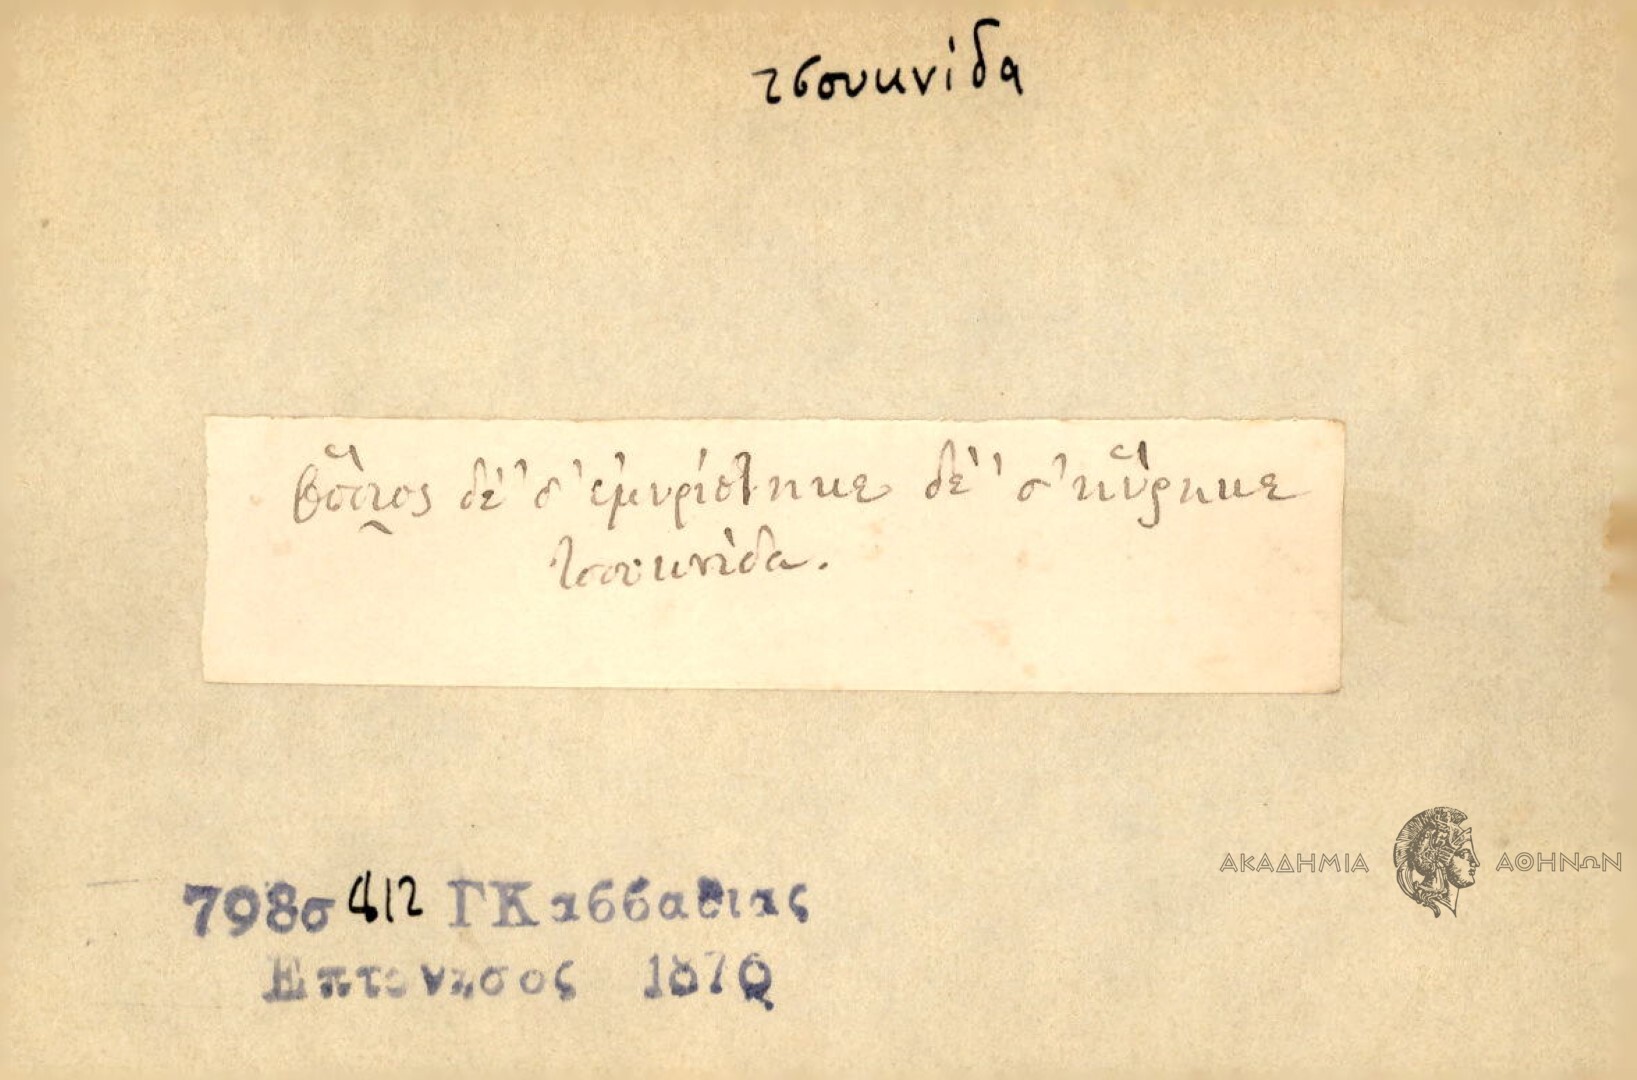 τσουκνίδα
ὅποιος δὲ σ' ἐμυρίστηκε δὲ σ' ηὕρηκε
τσουκνίδα.
798σ 412 ΓΚασσαθιας
Επτανησος 1870
ΑΚΑΔΗΜΙΑ ΑΘΗΝΩΝ